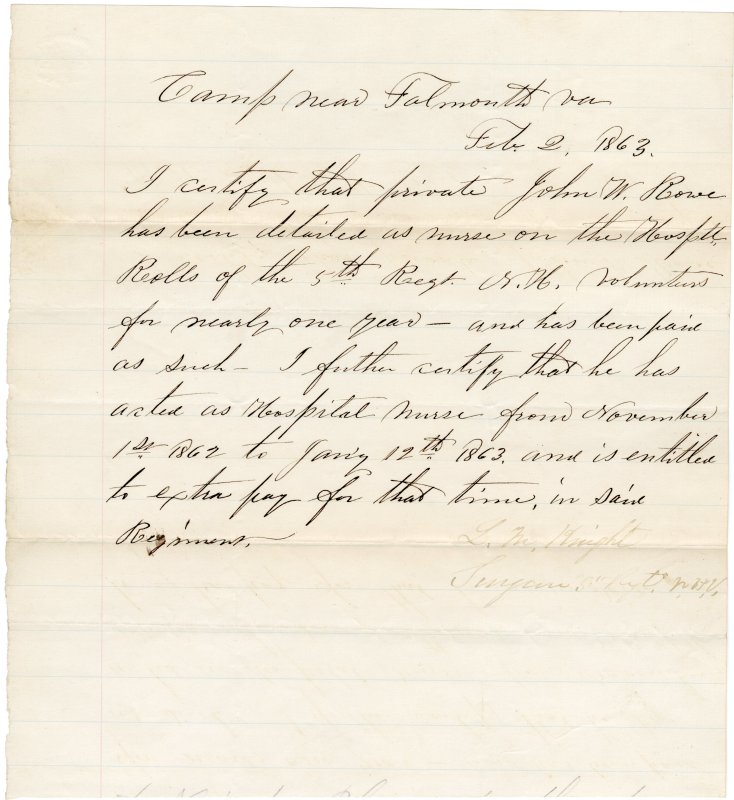 Camp near Falmouth va
Feb. 2, 1863.
I certify that private John W. Rowe
has been detailed as nurse on the Hospitl,
Rolls of the 5th Regt. N.H. Volunteers
for nearly one year — and has been paid
as such — I futher certify that he has
acted as Hospital nurse from November
1st 1862 to Jan'y 12th 1863. and is entitled
to extra pay for that time, in said
Regiment.
L. M. Knight
Surgeon 5th Regt. N.H.V.